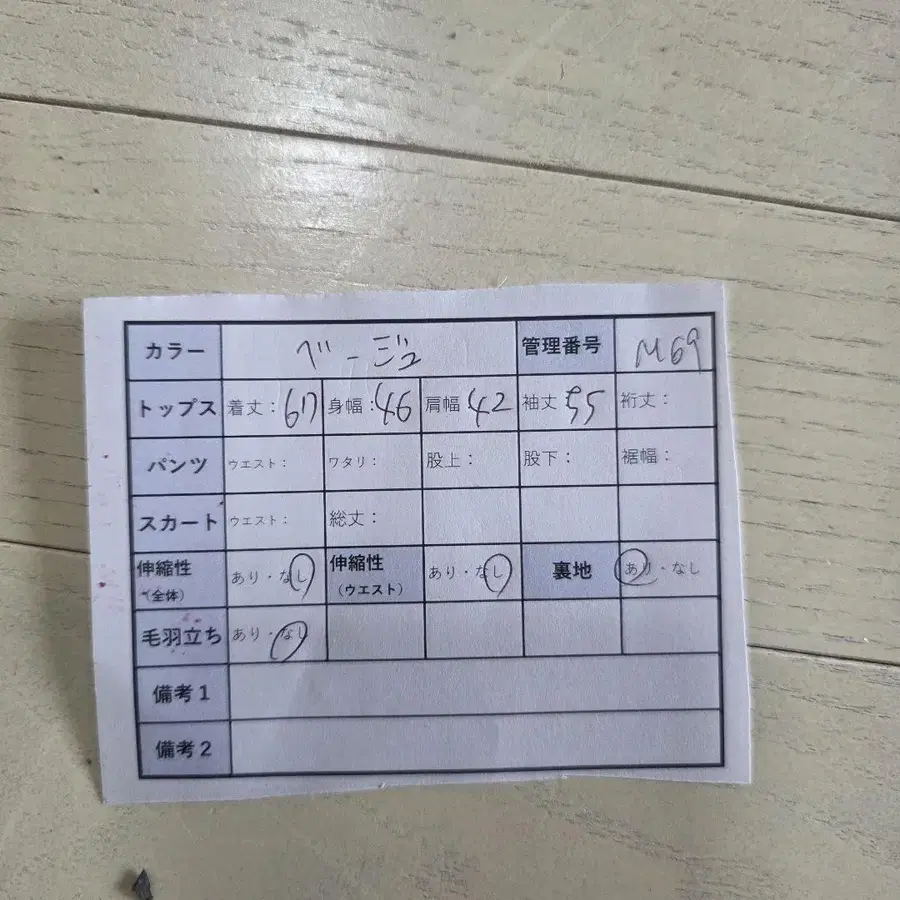 カラー ベージュ 管理番号 M69
トップス 着丈：67 身幅：46 肩幅 42 袖丈 55 裄丈：
パンツ ウエスト： ワタリ： 股上： 股下： 裾幅：
スカート ウエスト： 総丈：
伸縮性（全体） あり・なし 伸縮性（ウエスト） あり・なし 裏地 あり・なし
毛羽立ち あり・なし
備考１
備考２